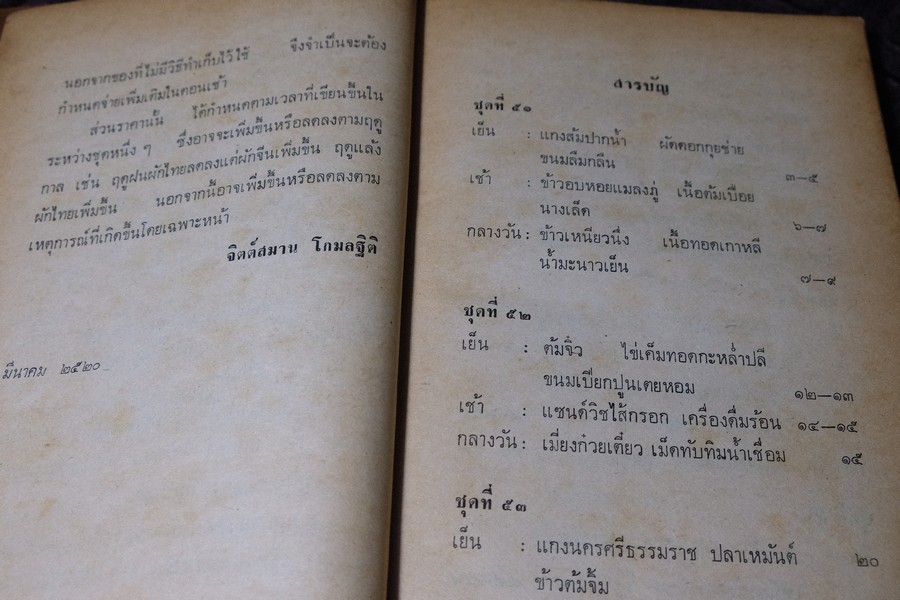 นอกจากของที่ไม่มีวิธีทำเก็บไว้ใช้ จึงจำเป็นจะต้อง
กำหนดจ่ายเพิ่มเติมในตอนเช้า
ส่วนราคานั้น ได้กำหนดตามเวลาที่เขียนขึ้นใน
ระหว่างชุดหนึ่ง ๆ ซึ่งอาจจะเพิ่มขึ้นหรือลดลงตามฤดู
กาล เช่น ฤดูฝนผักไทยลดลงแต่ผักจีนเพิ่มขึ้น ฤดูแล้ง
ผักไทยเพิ่มขึ้น นอกจากนี้อาจเพิ่มขึ้นหรือลดลงตาม
เหตุการณ์ที่เกิดขึ้นโดยเฉพาะหน้า
จิตต์สมาน โกมลฐิติ
มีนาคม ๒๕๒๐
สารบัญ
ชุดที่ ๕๑
เย็น : แกงส้มปากน้ำ ผัดดอกกุยช่าย
ขนมลืมกลืน ๓—๕
เช้า : ข้าวอบหอยแมลงภู่ เนื้อต้มเปื่อย
นางเล็ด ๖—๗
กลางวัน : ข้าวเหนียวนึ่ง เนื้อทอดเกาหลี
น้ำมะนาวเย็น ๗—๙
ชุดที่ ๕๒
เย็น : ต้มจิ๋ว ไข่เค็มทอดกะหล่ำปลี
ขนมเปียกปูนเตยหอม ๑๒—๑๓
เช้า : แซนด์วิชไส้กรอก เครื่องดื่มร้อน ๑๔—๑๕
กลางวัน : เมี่ยงก๋วยเตี๋ยว เม็ดทับทิมน้ำเชื่อม ๑๕
ชุดที่ ๕๓
เย็น : แกงนครศรีธรรมราช ปลาเหมันต์ ๒๐
ข้าวต้มจิ้ม